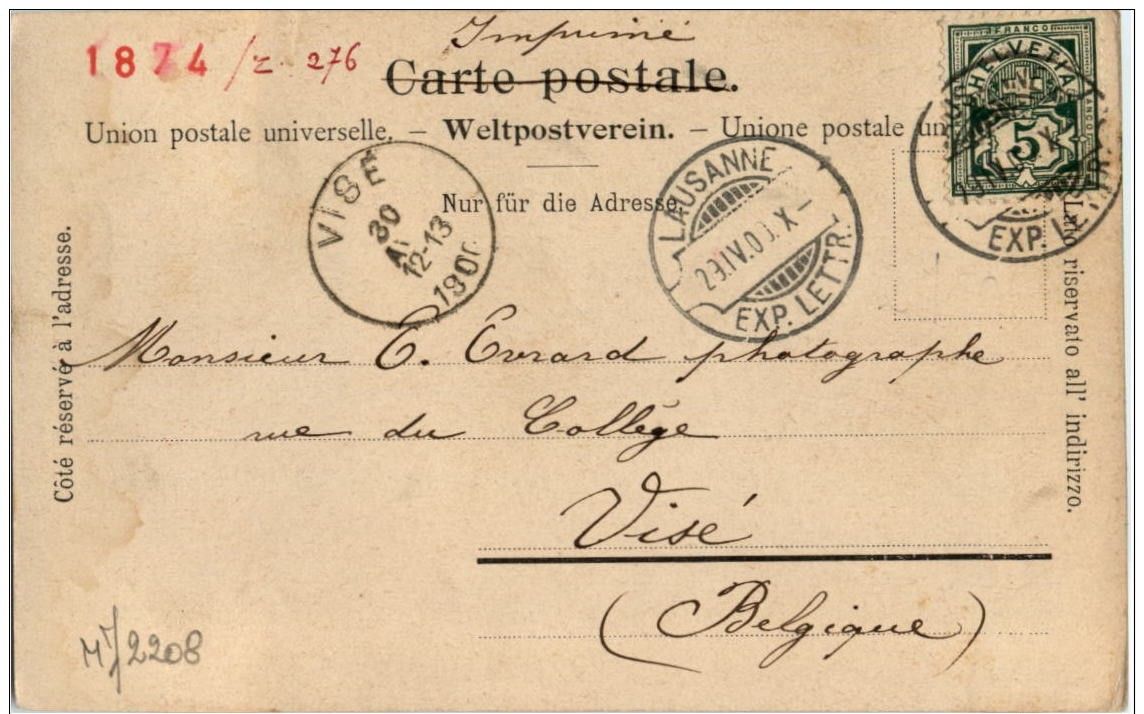 Imprimé
1874 /z. 276
Carte postale.
Union postale universelle. — Weltpostverein. — Unione postale un
Nur für die Adresse.
VISÉ
30
12-13
1900
LAUSANNE
29.IV.00.X—
EXP. LETTR.
FRANCO
HELVETIA
5
FRANCO
EXP. LETTR.
Côté réservé à l'adresse.
Lato riservato all' indirizzo.
Monsieur E. Evrard photographe
rue du Collège
Visé
(Belgique)
2208